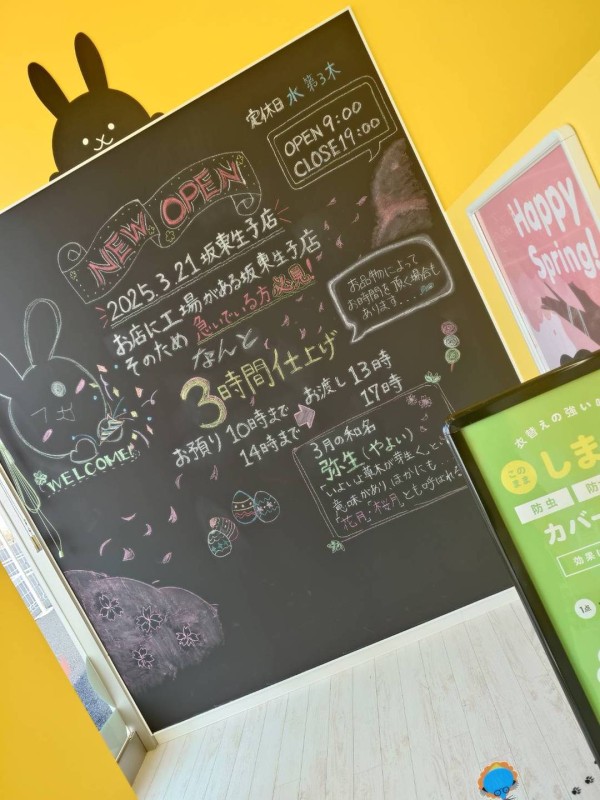 定休日 水 第3木
OPEN 9:00
CLOSE 19:00
NEW OPEN
2025.3.21 坂東生子店
お店に工場がある坂東生子店
そのため 急いでいる方必見!
なんと
3時間仕上げ
お預り 10時まで
14時まで
お渡し 13時
17時
お品物によって
お時間を頂く場合も
あります...
WELCOME!
3月の和名
弥生(やよい)
いよいよ草木が芽生く、とい
意味があり、ほかにも
"花月"、"桜月"とも呼ばれる
Happy
Spring!
衣替えの強い
この
まま
しま
防虫
カバー
効果
1点